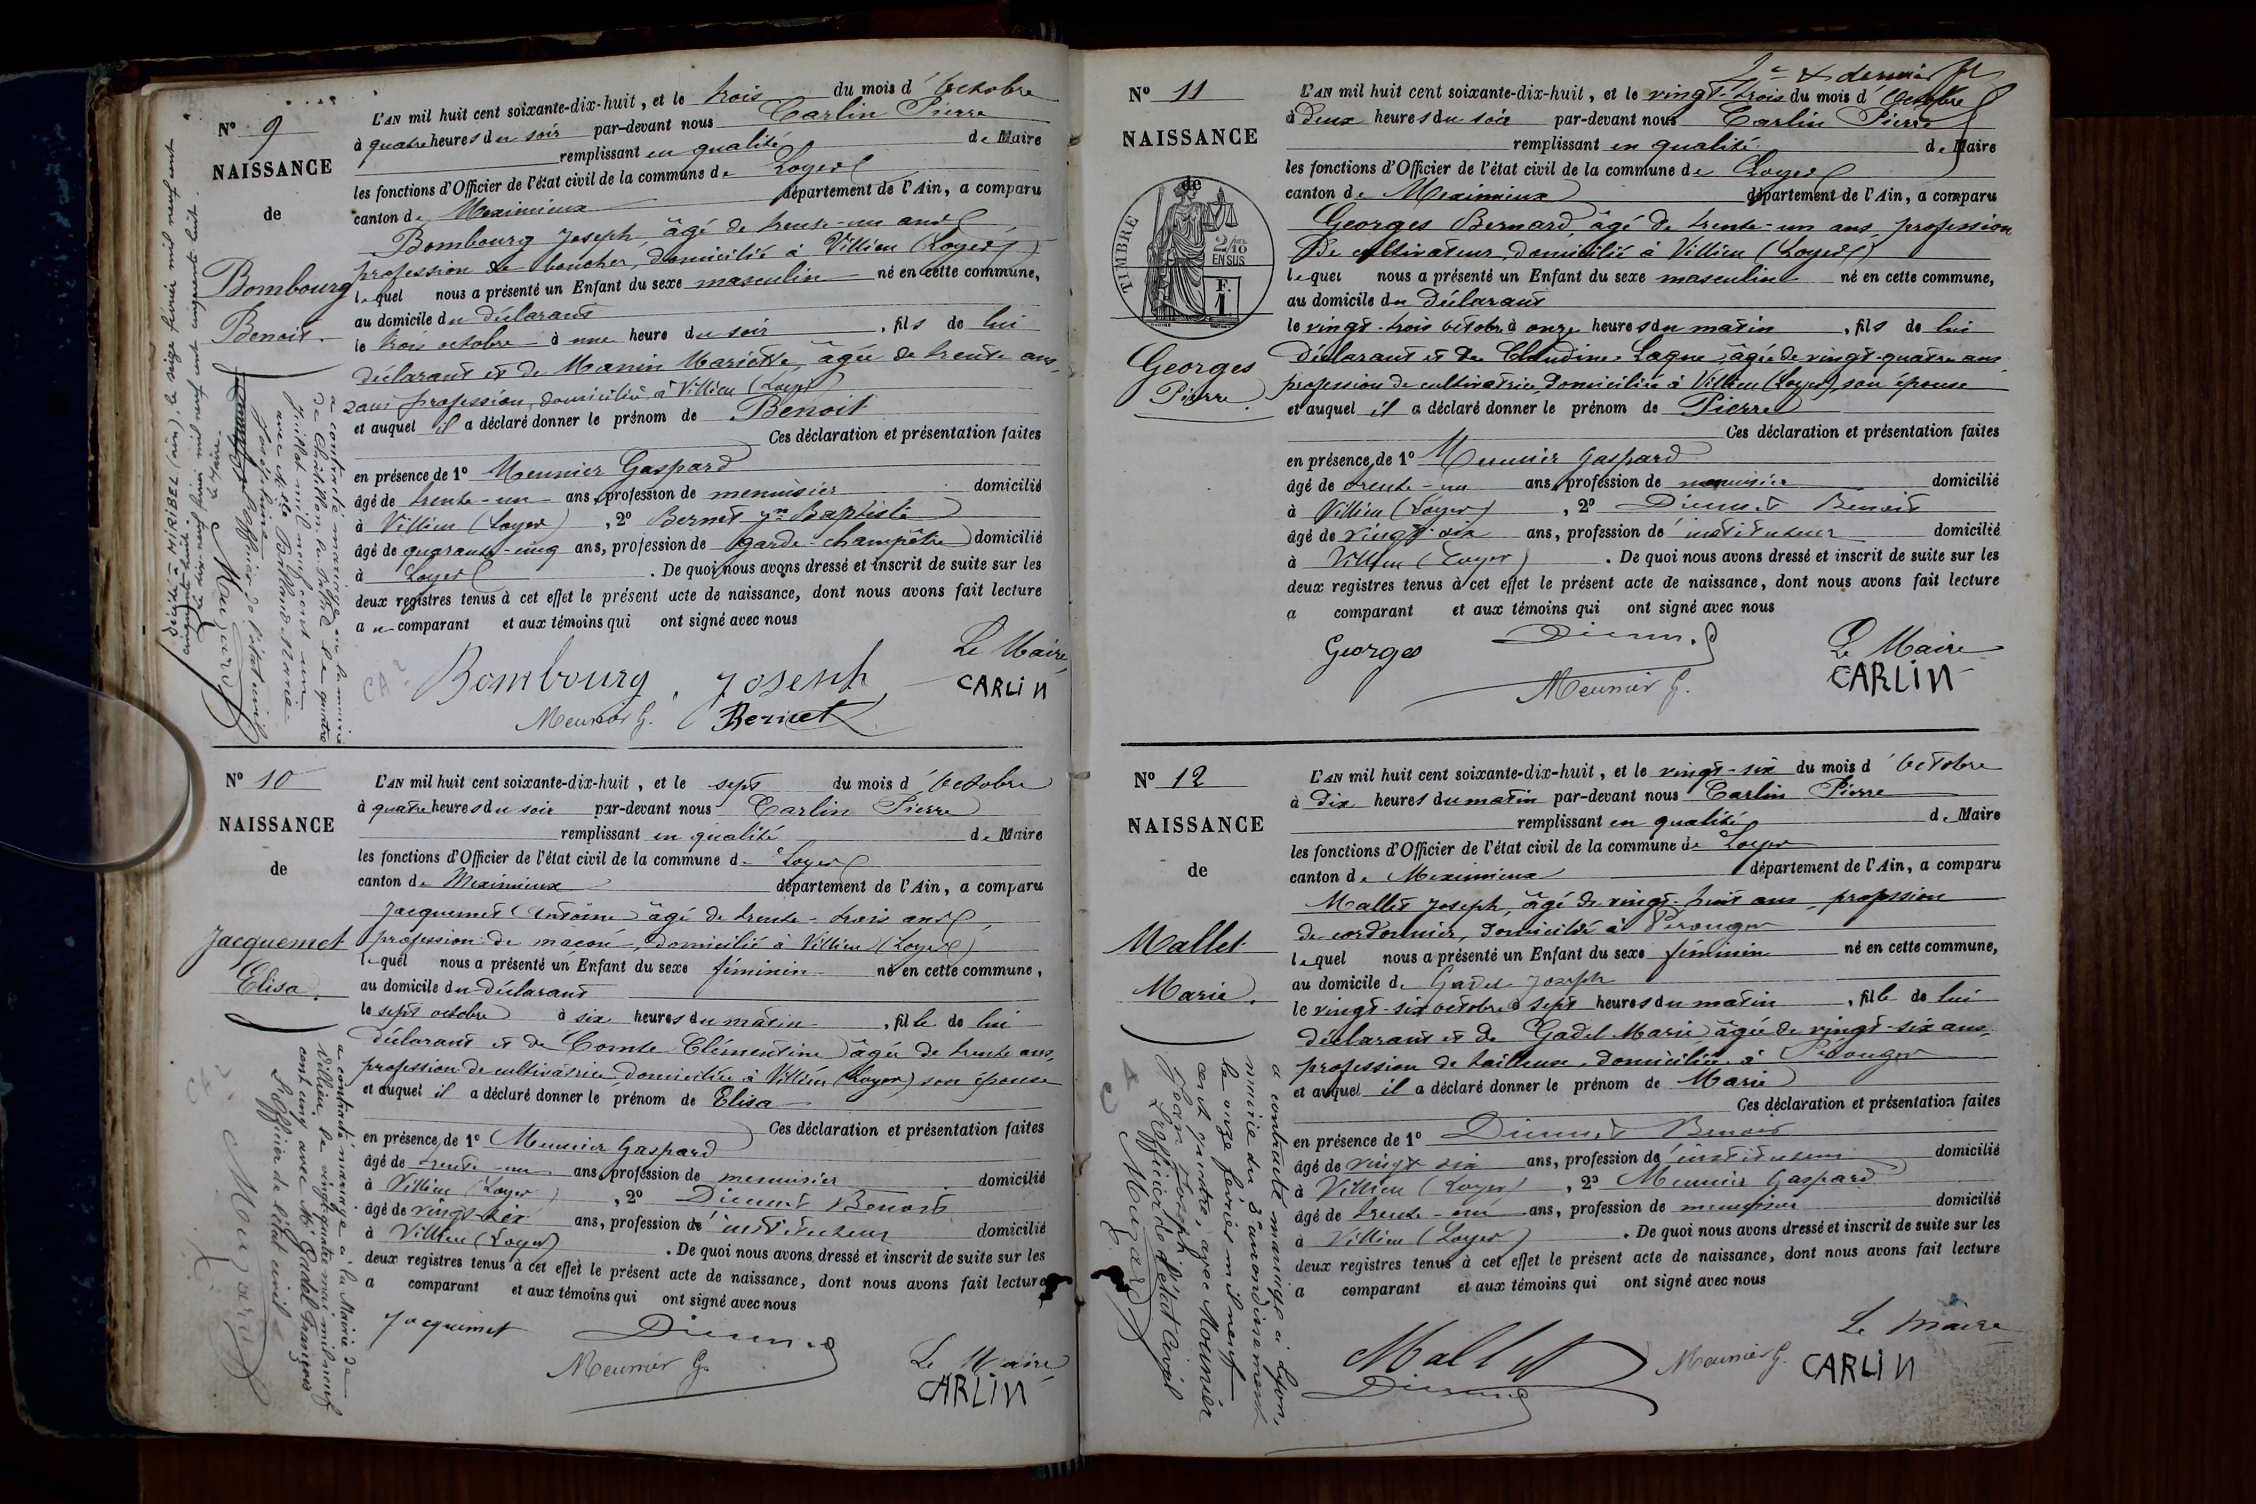 N° 9
NAISSANCE
de
Bombourg
Benoit.
L'AN mil huit cent soixante-dix-huit, et le trois du mois d'Octobre
à quatre heures du soir par-devant nous Carlin Pierre
remplissant en qualité de Maire
les fonctions d'Officier de l'état civil de la commune de Loyes
canton de Meximieux département de l'Ain, a comparu
Bombourg Joseph, âgé de trente-un ans,
profession de boucher, domicilié à Villieu (Loyes)
lequel nous a présenté un Enfant du sexe masculin né en cette commune,
au domicile du déclarant
le trois octobre à une heure du soir, fils de lui
déclarant et de Manin Mariette, âgée de trente ans,
sans profession, domiciliée à Villieu (Loyes)
et auquel il a déclaré donner le prénom de Benoit
Ces déclaration et présentation faites
en présence de 1° Meunier Gaspard
âgé de trente-un ans, profession de menuisier domicilié
à Villieu (Loyes), 2° Bernet Jn Baptiste
âgé de quarante-cinq ans, profession de garde-champêtre domicilié
à Loyes. De quoi nous avons dressé et inscrit de suite sur les
deux registres tenus à cet effet le présent acte de naissance, dont nous avons fait lecture
au comparant et aux témoins qui ont signé avec nous
Bombourg Joseph
Le Maire
CARLIN
Meunier G. Bernet
a contracté mariage à la mairie
de Châtillon la Palud le quatre
juillet mil neuf cent un
avec Mlle Rolland Marie
Joséphine
L'officier de l'état civil
Mouzard
Décédé à MIRIBEL (ain), le seize février mil neuf cent
cinquante huit.
Le dix neuf février mil neuf cent cinquante huit.
Le Maire.
N° 10
NAISSANCE
de
Jacquemet
Elisa.
L'AN mil huit cent soixante-dix-huit, et le sept du mois d'Octobre
à quatre heures du soir par-devant nous Carlin Pierre
remplissant en qualité de Maire
les fonctions d'Officier de l'état civil de la commune de Loyes
canton de Meximieux département de l'Ain, a comparu
Jacquemet Antoine âgé de trente-trois ans,
profession de maçon, domicilié à Villieu (Loyes)
lequel nous a présenté un Enfant du sexe féminin né en cette commune,
au domicile du déclarant
le sept octobre à six heures du matin, fille de lui
déclarant et de Comte Clémentine âgée de trente ans,
profession de cultivatrice, domiciliée à Villieu (Loyes) son épouse
et auquel il a déclaré donner le prénom de Elisa
Ces déclaration et présentation faites
en présence de 1° Meunier Gaspard
âgé de trente-un ans, profession de menuisier domicilié
à Villieu (Loyes), 2° Benoit
âgé de vingt-six ans, profession d'instituteur domicilié
à Villieu (Loyes). De quoi nous avons dressé et inscrit de suite sur les
deux registres tenus à cet effet le présent acte de naissance, dont nous avons fait lecture
a comparant et aux témoins qui ont signé avec nous
Jacquemet
Meunier G.
Le Maire
CARLIN
a contracté mariage à la Mairie de
Villieu le vingt-quatre mai mil neuf
cent cinq avec Mr Gadel François
L'officier de l'état civil
Mouzard
N° 11
NAISSANCE
de
TIMBRE
2/10
EN SUS
F.
1
Georges
Pierre.
2e & dernier ft
L'AN mil huit cent soixante-dix-huit, et le vingt-trois du mois d'Octobre
à deux heures du soir par-devant nous Carlin Pierre
remplissant en qualité de Maire
les fonctions d'Officier de l'état civil de la commune de Loyes
canton de Meximieux département de l'Ain, a comparu
Georges Bernard, âgé de trente-un ans, profession
de cultivateur, domicilié à Villieu (Loyes)
lequel nous a présenté un Enfant du sexe masculin né en cette commune,
au domicile du déclarant
le vingt-trois octobre à onze heures du matin, fils de lui
déclarant et de Claudine Lagne âgée de vingt-quatre ans
profession de cultivatrice, domiciliée à Villieu (Loyes), son épouse
et auquel il a déclaré donner le prénom de Pierre
Ces déclaration et présentation faites
en présence de 1° Meunier Gaspard
âgé de trente-un ans, profession de menuisier domicilié
à Villieu (Loyes), 2° Benoit
âgé de vingt-six ans, profession d'instituteur domicilié
à Villieu (Loyes). De quoi nous avons dressé et inscrit de suite sur les
deux registres tenus à cet effet le présent acte de naissance, dont nous avons fait lecture
a comparant et aux témoins qui ont signé avec nous
Georges
Meunier G.
Le Maire
CARLIN
N° 12
NAISSANCE
de
Mallet
Marie.
L'AN mil huit cent soixante-dix-huit, et le vingt-six du mois d'Octobre
à dix heures du matin par-devant nous Carlin Pierre
remplissant en qualité de Maire
les fonctions d'Officier de l'état civil de la commune de Loyes
canton de Meximieux département de l'Ain, a comparu
Mallet Joseph, âgé de vingt-huit ans, profession
de cordonnier, domicilié à Pérouges
lequel nous a présenté un Enfant du sexe féminin né en cette commune,
au domicile de Gadel Joseph
le vingt-six octobre à sept heures du matin, fille de lui
déclarant et de Gadel Marie âgée de vingt-six ans,
profession de tailleuse, domiciliée à Pérouges
et auquel il a déclaré donner le prénom de Marie
Ces déclaration et présentation faites
en présence de 1° Benoit
âgé de vingt six ans, profession d'instituteur domicilié
à Villieu (Loyes), 2° Meunier Gaspard
âgé de trente-un ans, profession de menuisier domicilié
à Villieu (Loyes). De quoi nous avons dressé et inscrit de suite sur les
deux registres tenus à cet effet le présent acte de naissance, dont nous avons fait lecture
a comparant et aux témoins qui ont signé avec nous
Mallet
Meunier G.
Le Maire
CARLIN
a contracté mariage à Lyon,
mairie du 3e arrondissement
le onze février mil neuf
cent quatre, avec Mounier
Jean Joseph
L'officier de l'état civil
Mouzard